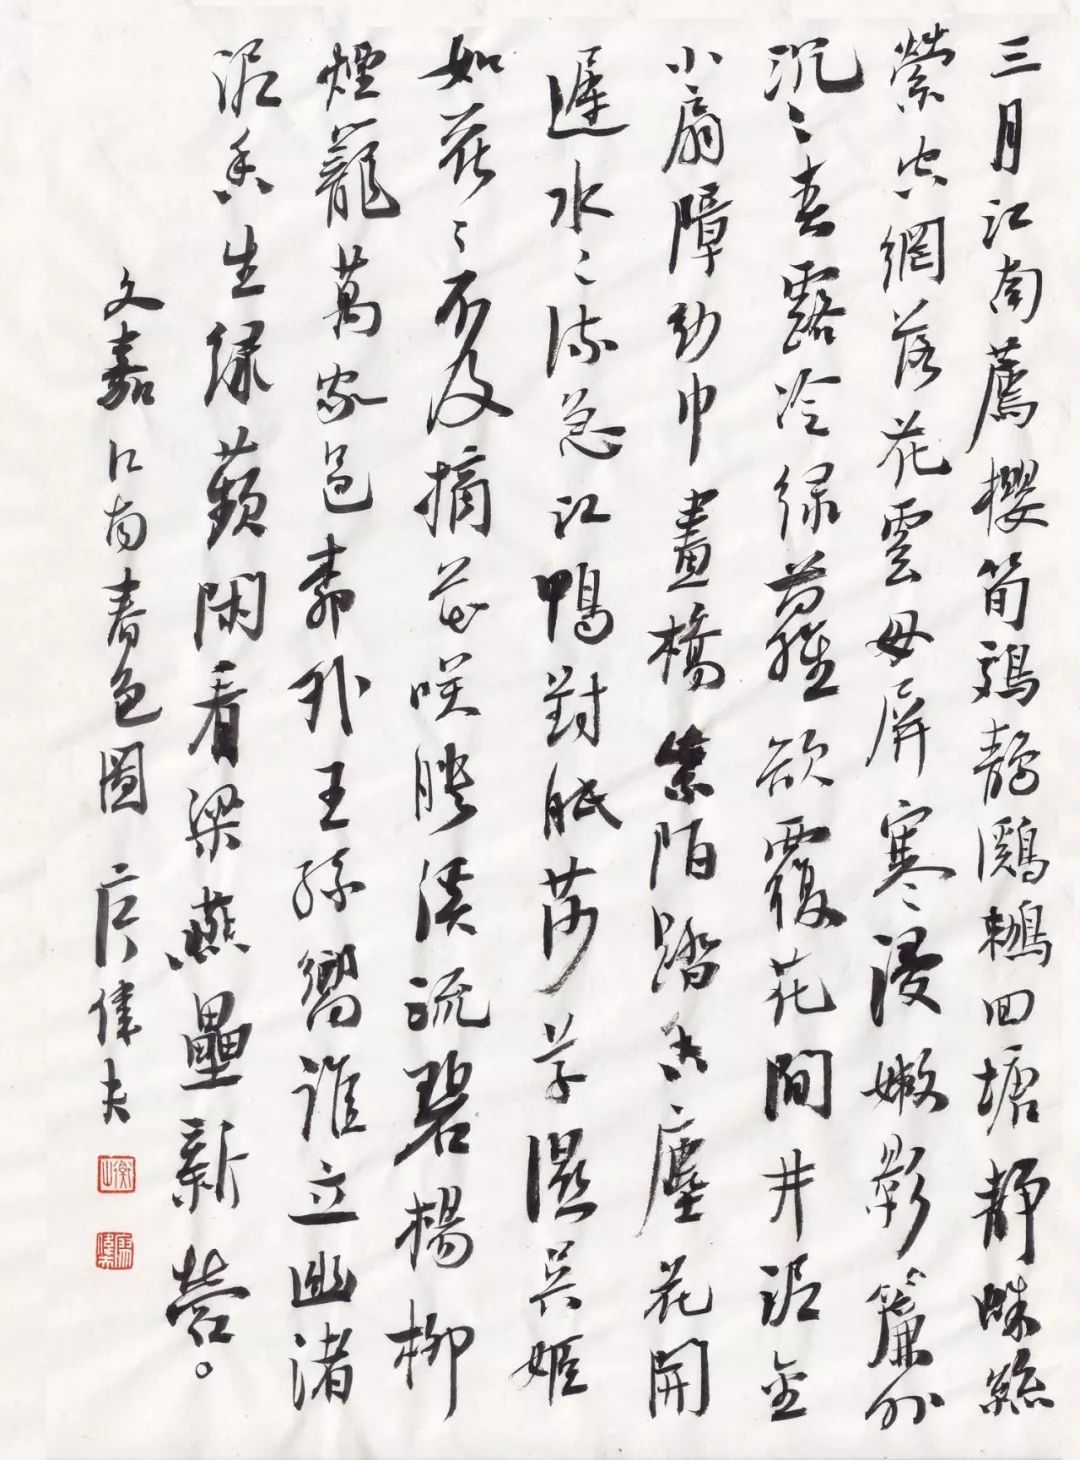 三月江南薦櫻筍鵁鶄鸂鶒回塘靜蛛絲
縈空網落花雲母屏寒浸嫩影簾外
沉〻春露冷綠蘿欲覆花間井泥金
小扇障幼巾畫橋紫陌踏香塵花開
遲水〻流急江鴨對眠莎草濕吳姬
如花〻不及摘花咲映溪流碧楊柳
煙籠萬家邑郭外王孫嚮誰立幽渚
泥香生綠蘋閑看梁燕壘新營。
文嘉江南春色圖 偉夫